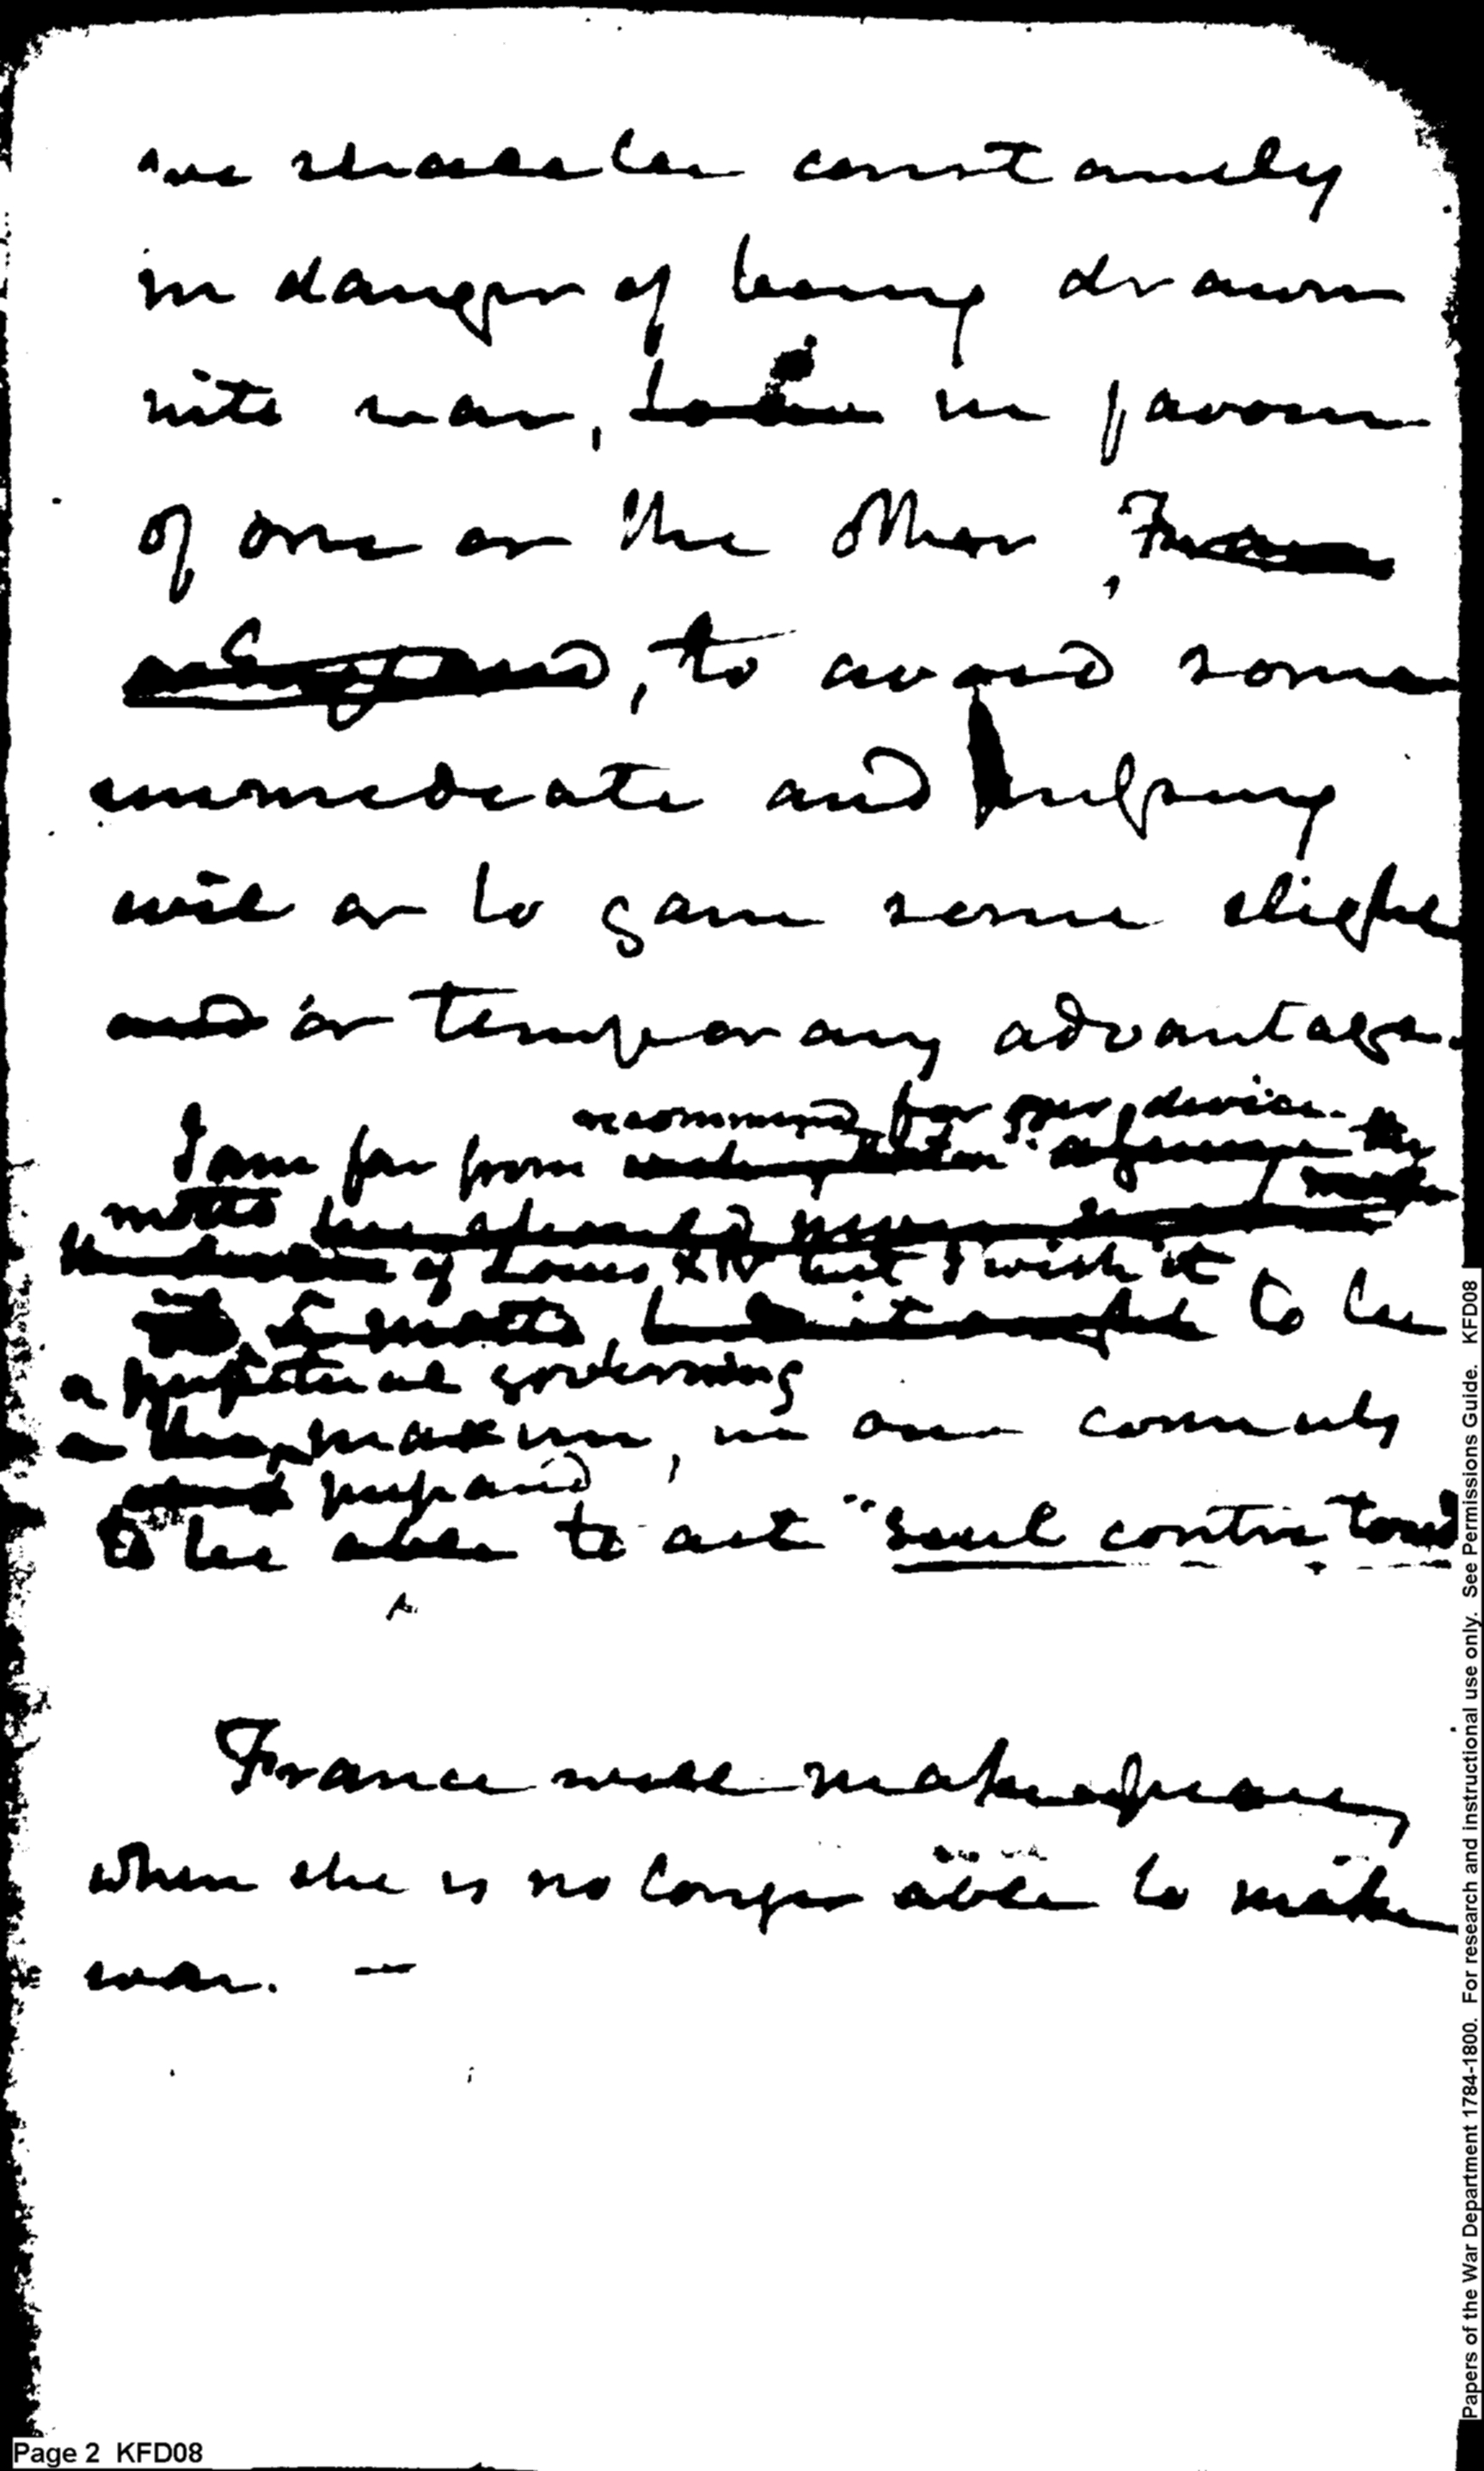 we shall be constantly
in danger of being drawn
into war, in favour
of one or the other,
, to avoid some
immediate and
evil or to gain some slight
and or temporary advantage.
recommend for our device the
I am far from
motto
of Louis XIV but I wish it
to be
a perpetual governing
maxim, in our councils
prepared
to be able to act "seul contre tous
France will make peace,
when she is no longer able to make
war. —
Page 2 KFD08
Papers of the War Department 1784-1800. For research and instructional use only. See Permissions Guide. KFD08